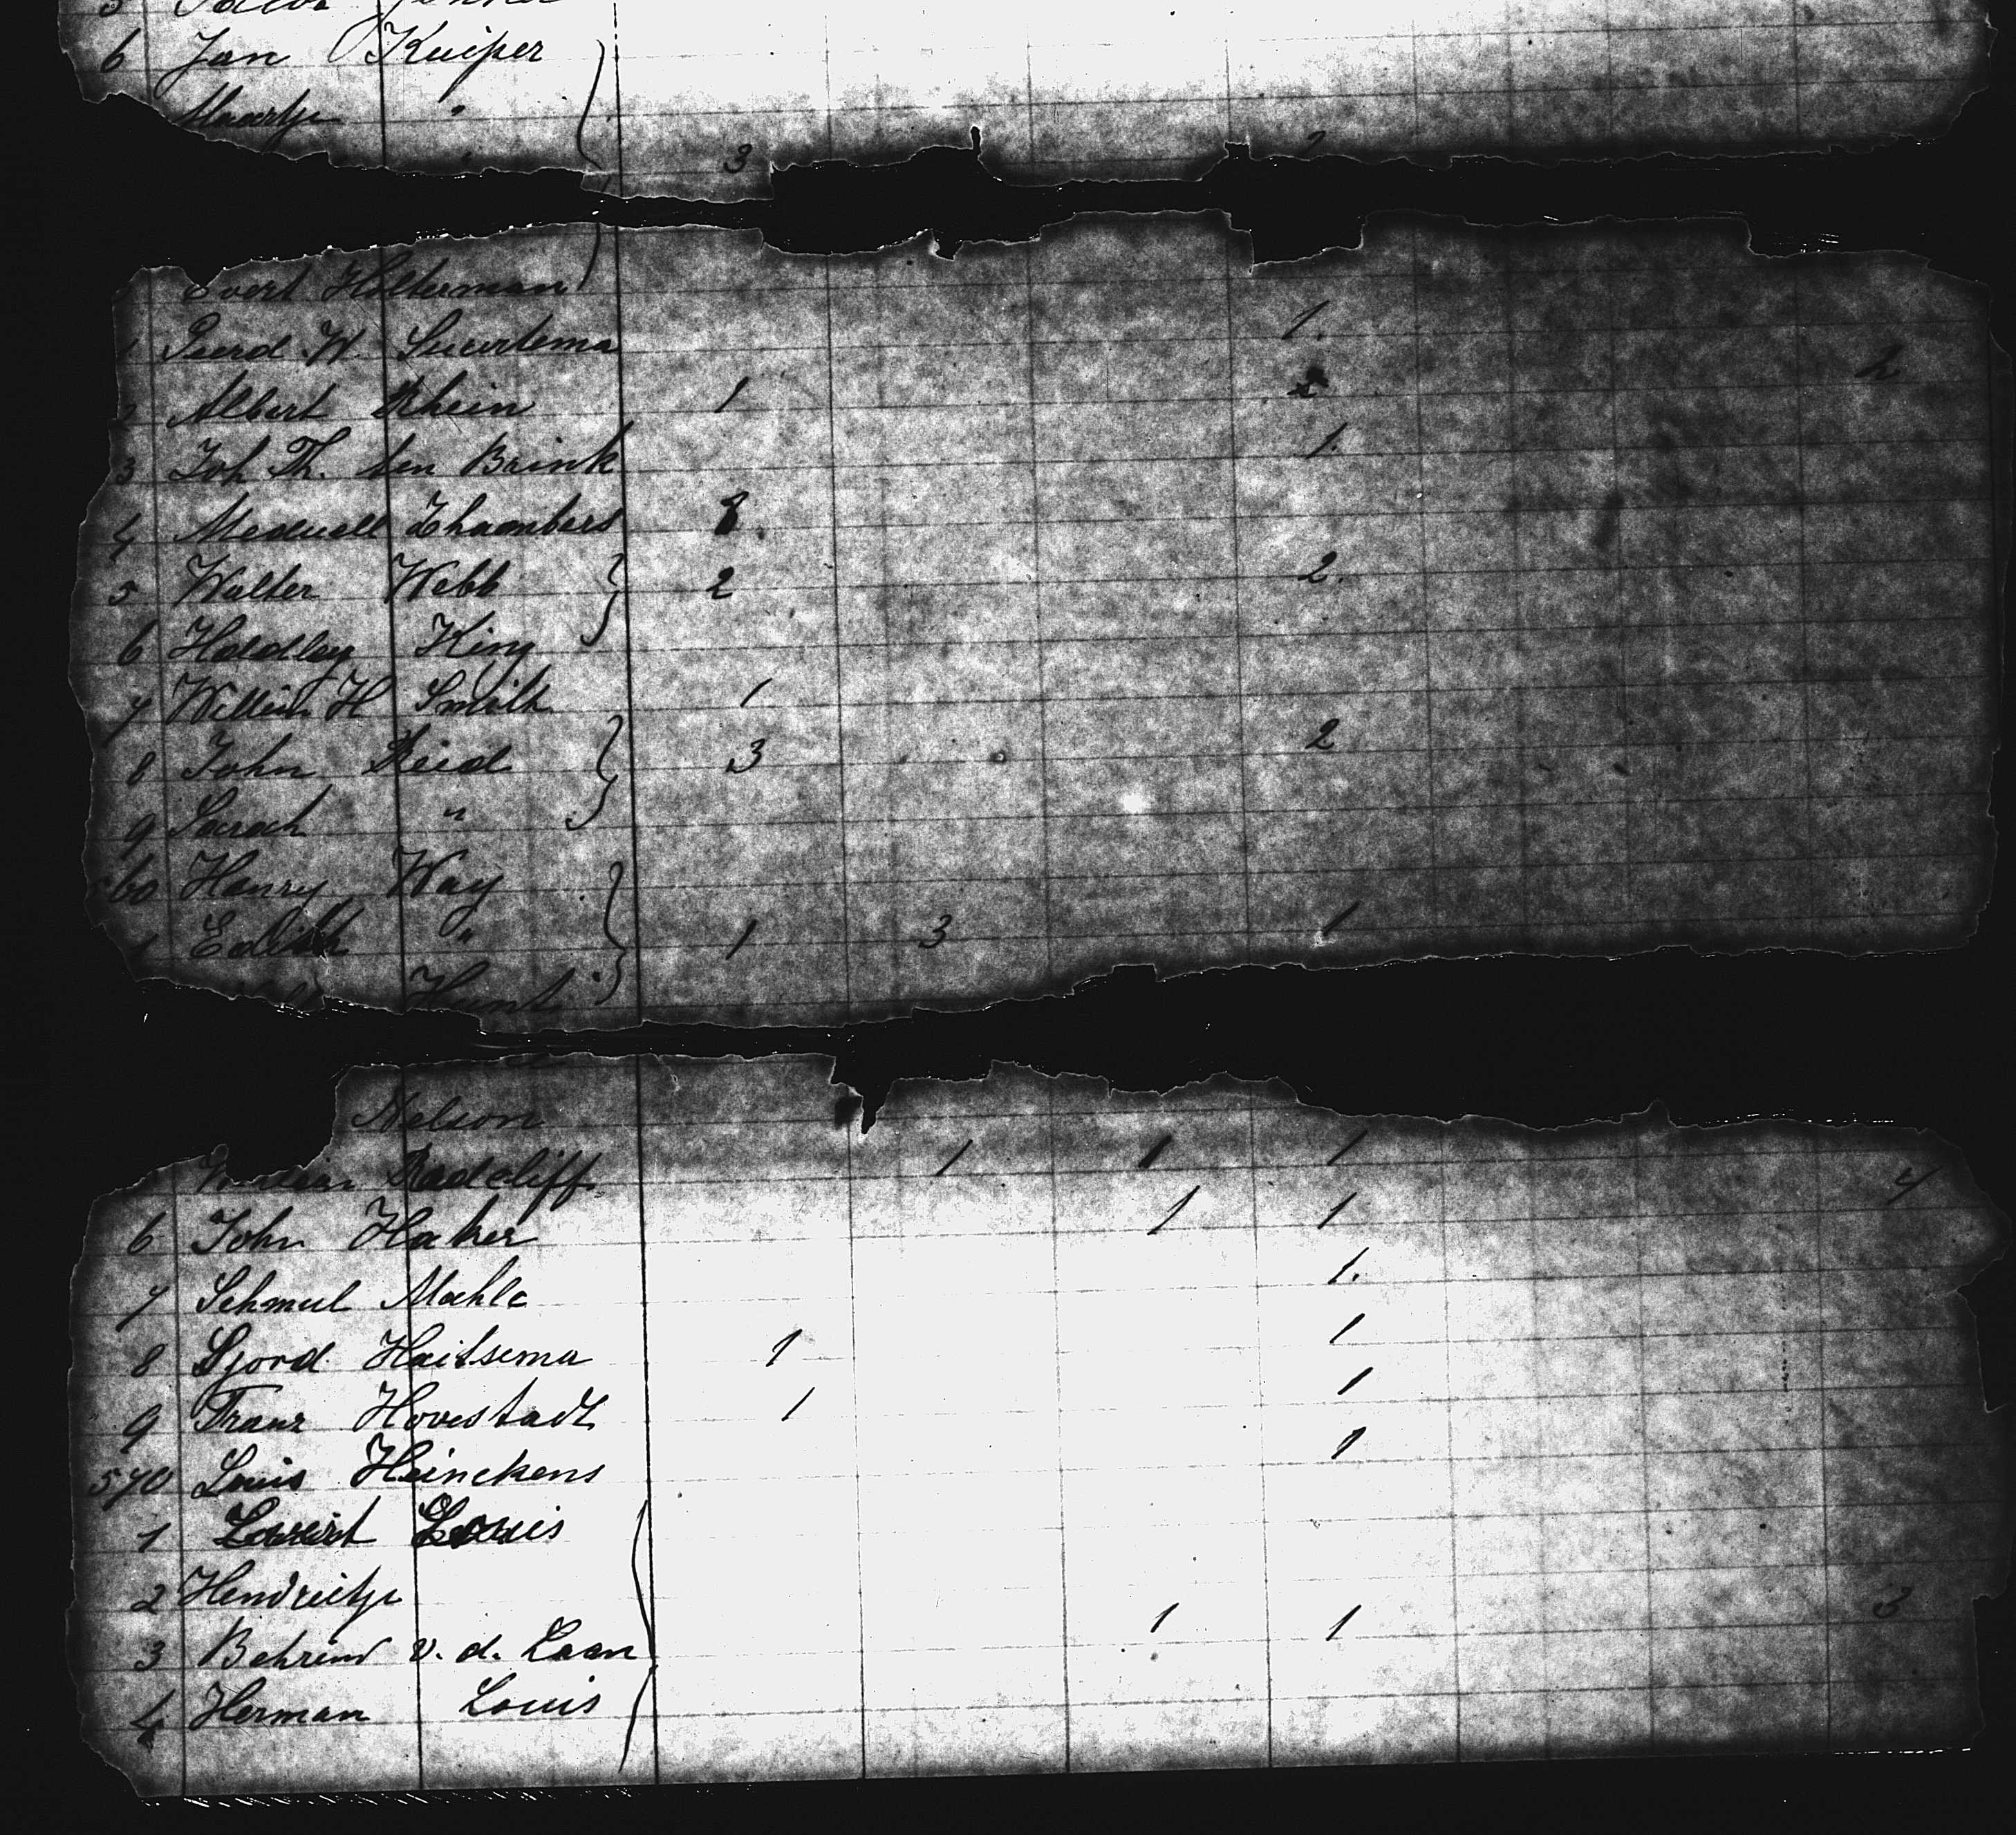 6 Jan Kuiper
Maartje "
3
Evert Holterman
Sjoerd W. 1.
Albert Rhein 1 2 2
3 Joh Th. ten Brink 1.
4 Chambers
5 Walter Webb 2 2.
6 Hoadley King
7 William H Smith 1
8 John Reid 3 2
9 Sarah "
60 Henry Way
1 Edith " 1 3 1
Hunt
Nelson
Radcliff 1 1 1 4
6 John Haker 1 1
7 Schmul Mahle 1.
8 Sjord Haitsema 1 1
9 Franz Hovestadt 1 1
570 Louis Heinckens 1
1 Louis
2 Hendrietje
3 Behrend v. d. Laan 1 1 3
4 Herman Louis